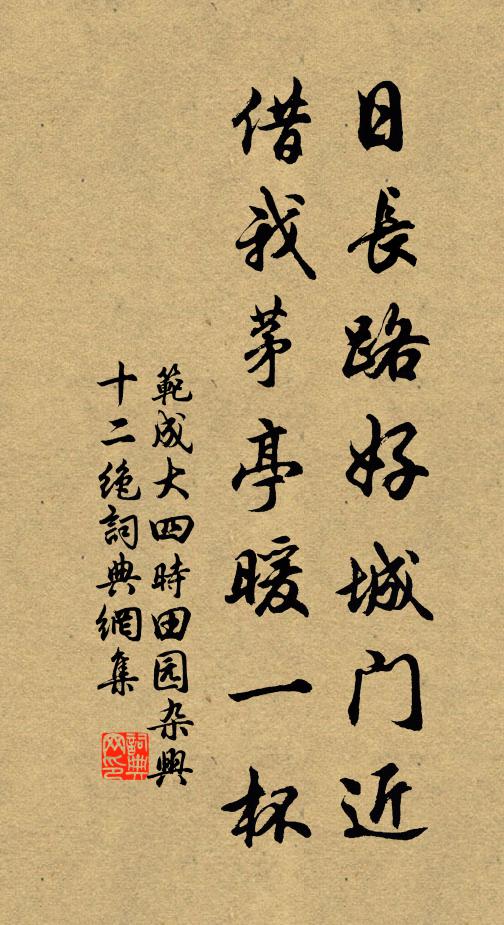 日長路好城门近
借我茅亭暖一杯
範成大四時田园杂興
十二绝詞典網集
詞典网印